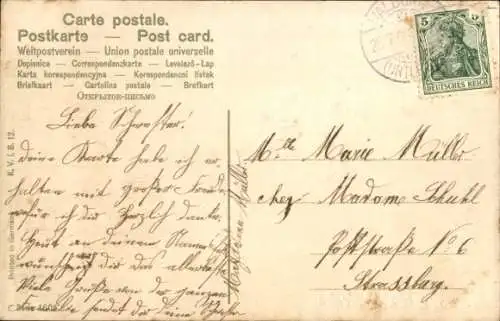 Carte postale.
Postkarte — Post card.
Weltpostverein — Union postale universelle
Dopisnica — Correspondenzkarte — Levelező-Lap
Karta korespondencyjna — Korespondenční lístek
Briefkaart — Cartolina postale — Brefkort
Открытое письмо
5
DEUTSCHES REICH
Liebe Schwester!
deine Karte habe ich er
halten mit großer Freude
wofür ich dir herzlich danke.
Heute an deinem Namens
wünscht dir das allerbeste
Viele Grüße von der ganzen
Familie
sendet dir deine
Müller
Mlle Marie Müller
chez Madame Schuhl
Poststraße No 6
Strassburg.
K. V. i. B. 12.
Printed in Germany